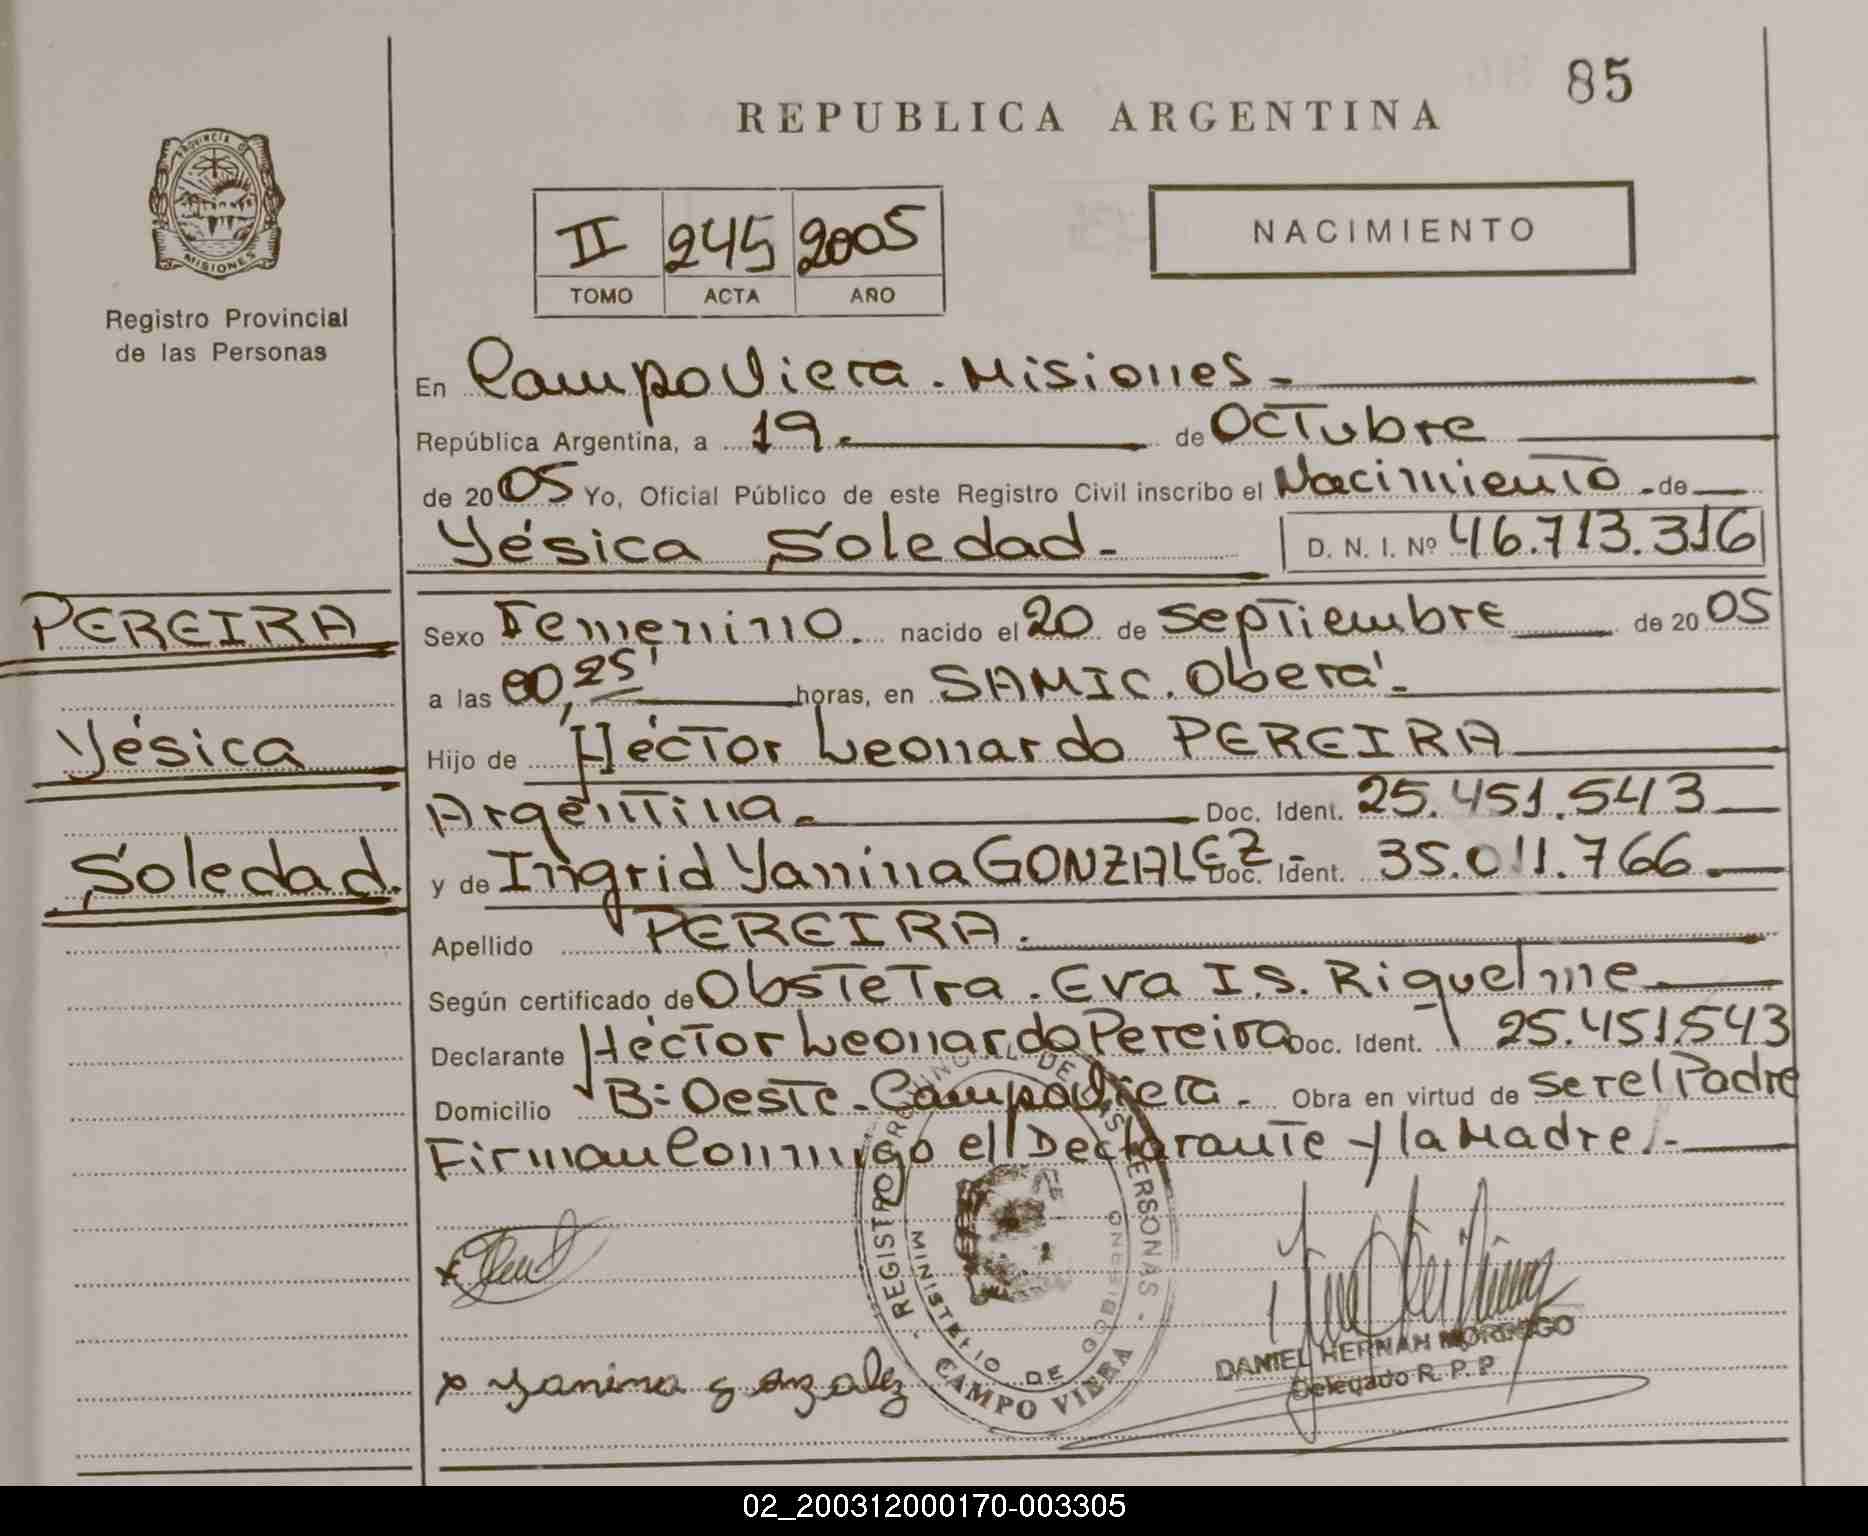 85
REPUBLICA ARGENTINA
PROVINCIA DE
MISIONES
Registro Provincial
de las Personas
II 245 2005
TOMO ACTA AÑO
NACIMIENTO
En Campo Viera. Misiones-
República Argentina, a 19. de Octubre
de 2005 Yo, Oficial Público de este Registro Civil inscribo el Nacimiento.de
Yésica Soledad- D. N. I. Nº 46.713.316
PEREIRA
Yésica
Soledad.
Sexo Femenino. nacido el 20 de Septiembre de 2005
a las 00,25' horas, en SAMIC. Oberá-
Hijo de Héctor Leonardo PEREIRA
Argentina. Doc. Ident. 25.451.543
y de Ingrid Yanina GONZALEZ- Doc. Ident. 35.011.766.
Apellido PEREIRA.
Según certificado de Obstetra. Eva I.S. Riquelme
Declarante Héctor Leonardo Pereira Doc. Ident. 25.451.543
Domicilio B: Oeste. Campo Viera. Obra en virtud de ser el Padre
Firman Conmigo el Declarante y la Madre.-
REGISTRO PROVINCIAL DE LAS PERSONAS -
MINISTERIO DE GOBIERNO
CAMPO VIERA
x
x yanina gonzalez
DANIEL HERNAN MORINIGO
Delegado R. P. P.
02_200312000170-003305